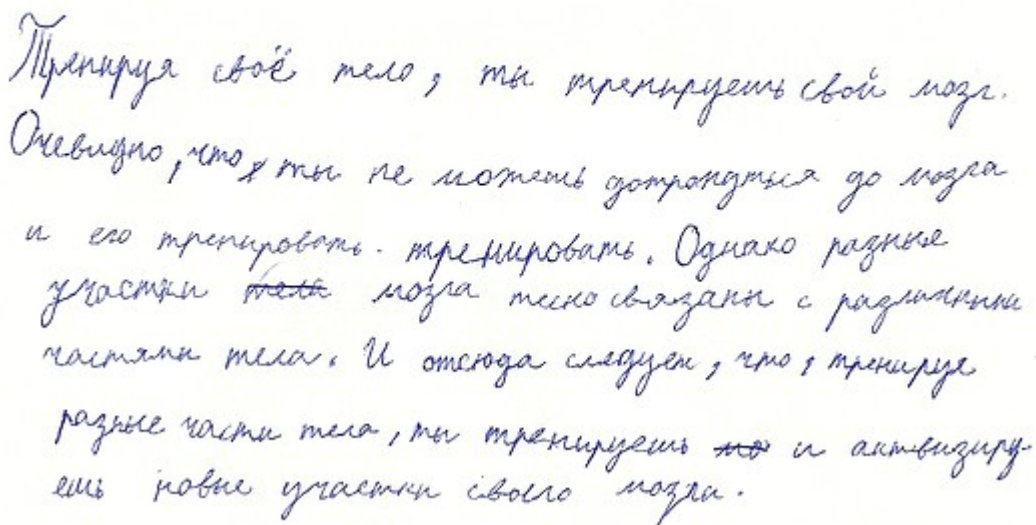 Тренируя своё тело, ты тренируешь свой мозг.
Очевидно, что ты не можешь дотронуться до мозга
и его тренировать. тренировать. Однако разные
участки тела мозга тесно связаны с различными
частями тела. И отсюда следует, что, тренируя
разные части тела, ты тренируешь мо и активизиру-
ешь новые участки своего мозга.